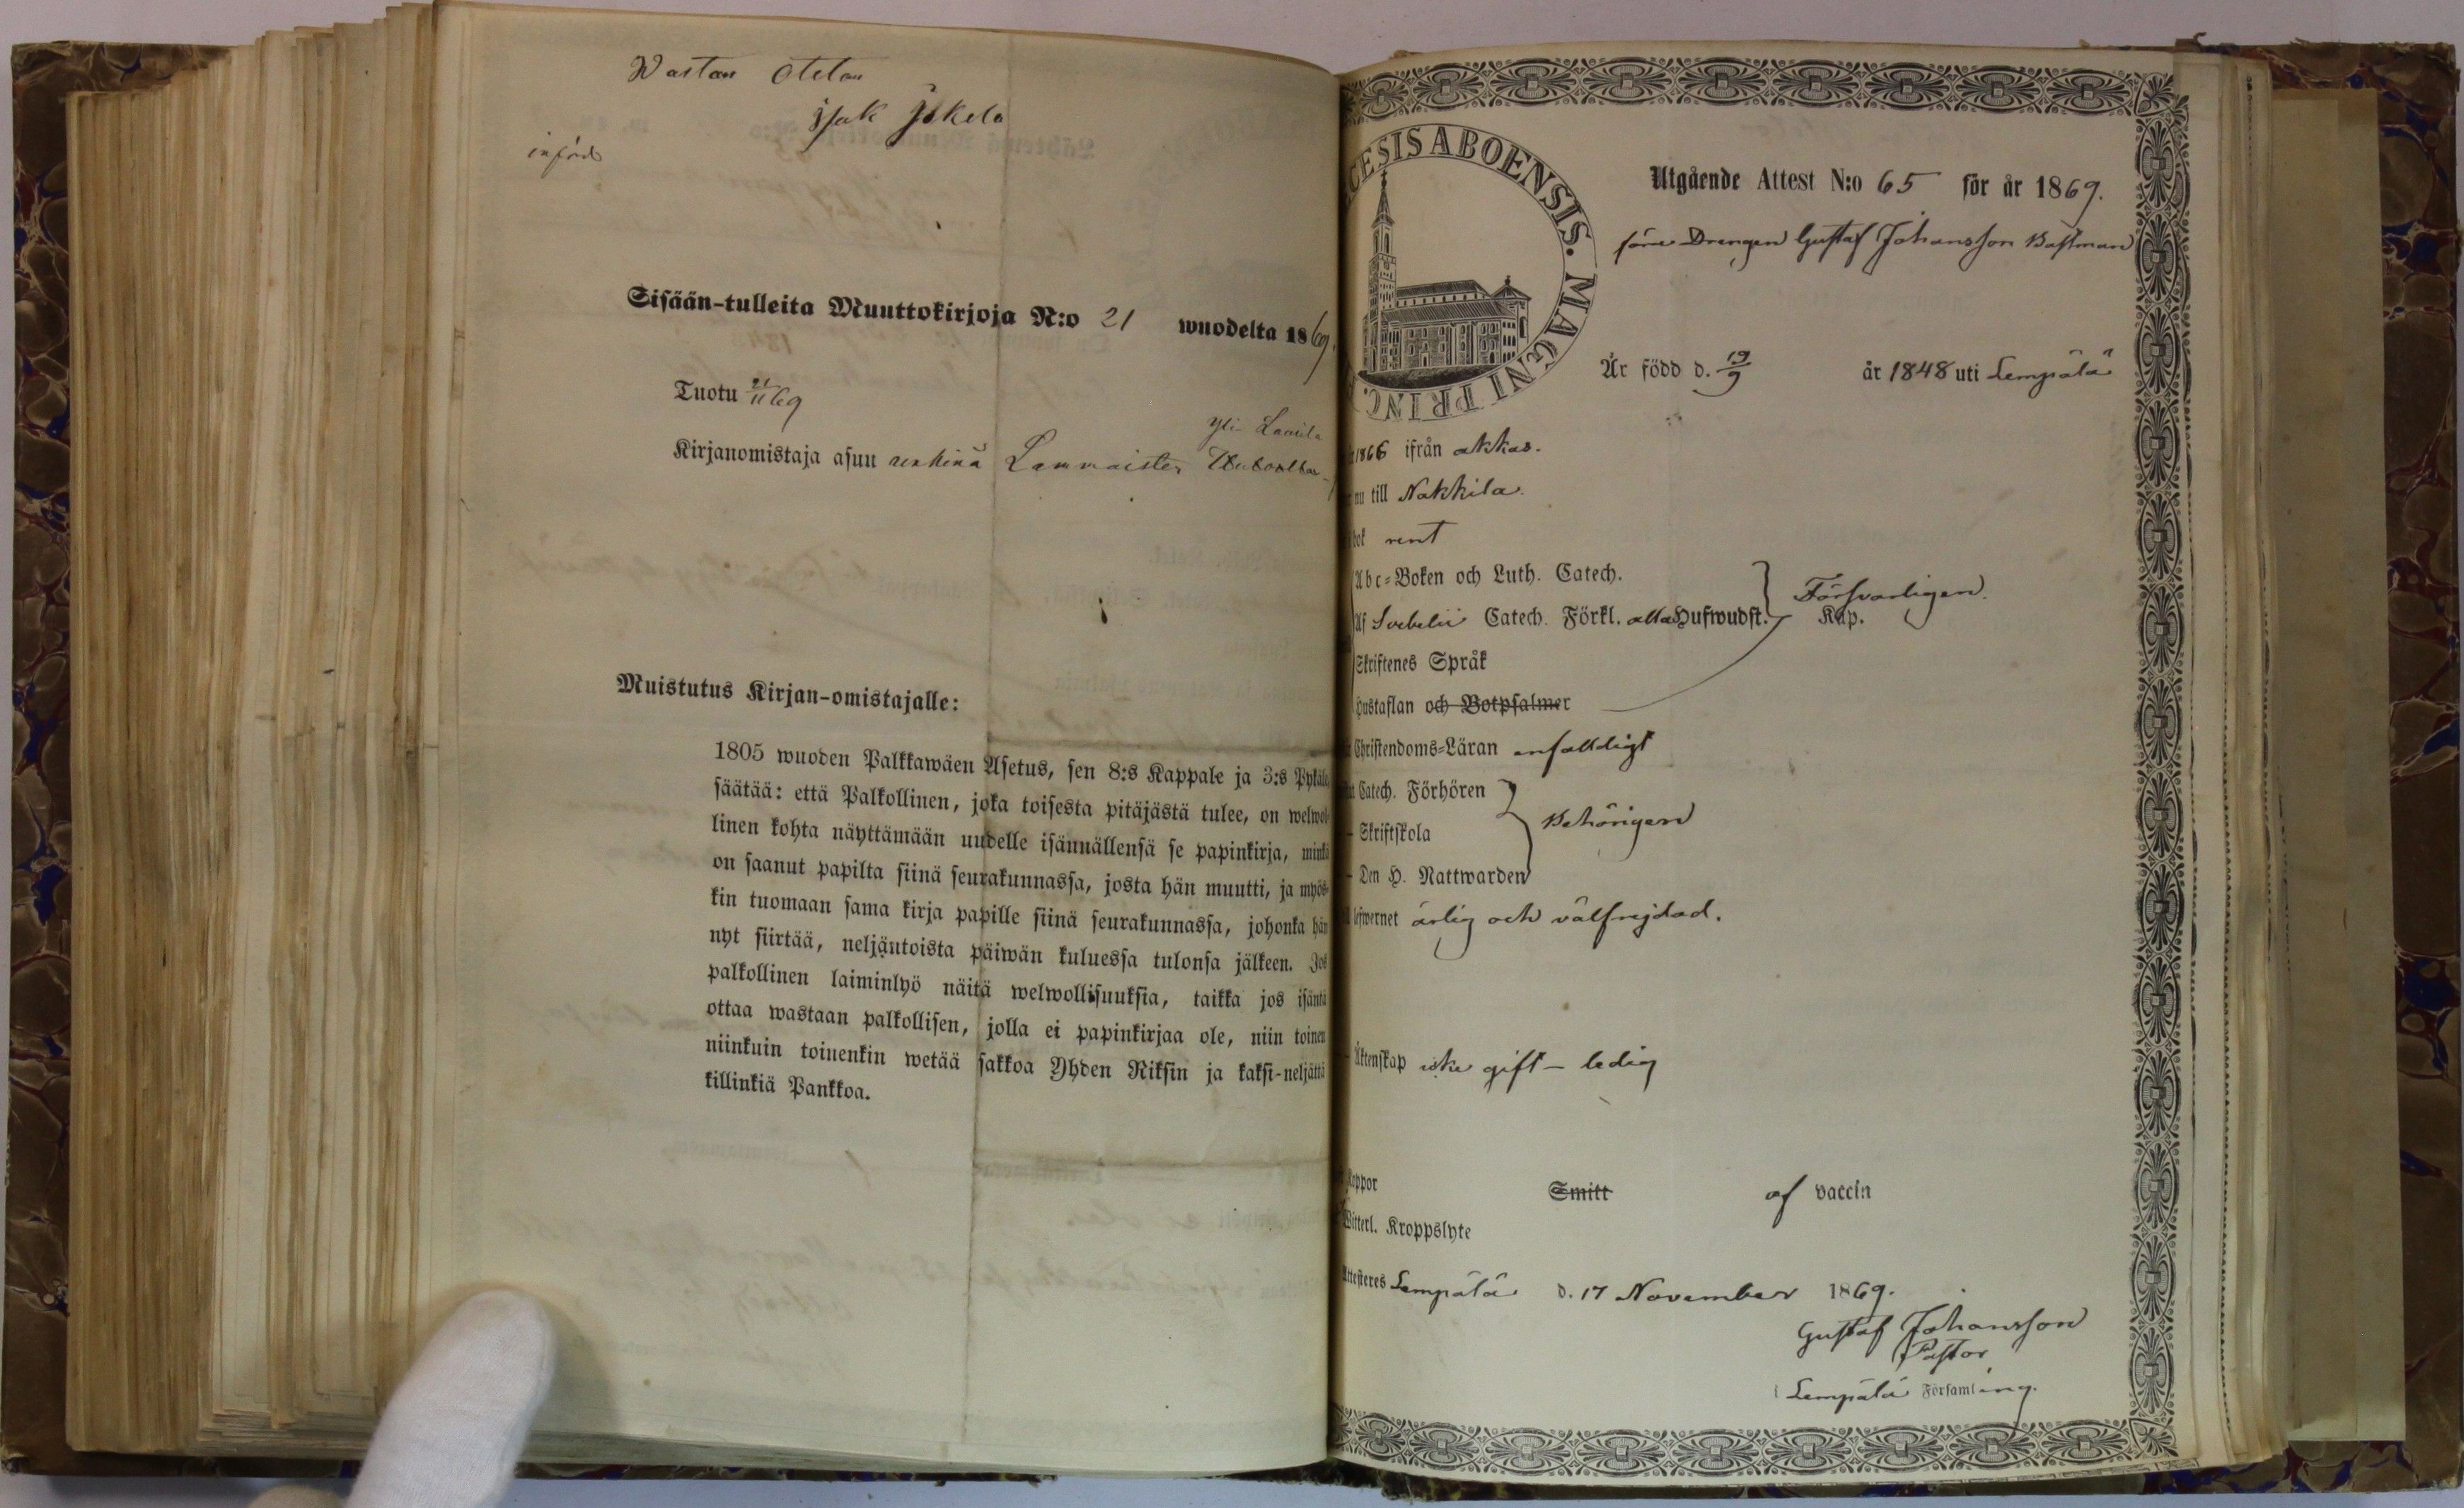 Wastan otetan
Isak Jskela
införd
Sisään-tulleita Muuttokirjoja N:o 21 wuodelta 1869.
Tuotu 21/11 69
Yli Laurila
Kirjanomistaja asuu renkinä Lammaisten
Muistutus Kirjan-omistajalle:
1805 wuoden Palkkawäen Asetus, sen 8:s Kappale ja 3:s Pykälä
säätää: että Palkollinen, joka toisesta pitäjästä tulee, on welwol-
linen kohta näyttämään uudelle isännällensä se papinkirja, minkä
on saanut papilta siinä seurakunnassa, josta hän muutti, ja myös-
kin tuomaan sama kirja papille siinä seurakunnassa, johonka hän
nyt siirtää, neljäntoista päiwän kuluessa tulonsa jälkeen. Jos
palkollinen laiminlyö näitä welwollisuuksia, taikka jos isäntä
ottaa wastaan palkollisen, jolla ei papinkirjaa ole, niin toinen
niinkuin toinenkin wetää sakkoa Yhden Riksin ja kaksi-neljättä
killinkiä Pankkoa.
CESIS ABOENSIS. MAGNI PRINC
Utgående Attest N:o 65 för år 1869.
före Drengen Gustaf Johansson Bastman
Är född d. 19/9 år 1848 uti Lempälä
1866 ifrån Akkas.
nu till Nakkila.
bok rent
Abc-Boken och Luth. Catech.
Af Svebelii Catech. Förkl. alla Hufwudst. Kap.
Försvarligen.
Skriftenes Språk
Hustaflan och Botpsalmer
Christendoms-Läran enfaldigt
Catech. Förhören
Skriftskola
Behörigen
Den H. Nattwarden
lefwernet ärlig och välfrejdad.
Äktenskap icke gift - ledig
Koppor Smitt af vaccin
Witterl. Kroppslyte
Attesteres Lempälä d. 17 November 1869.
Gustaf Johansson
Pastor
i Lempälä Församling.